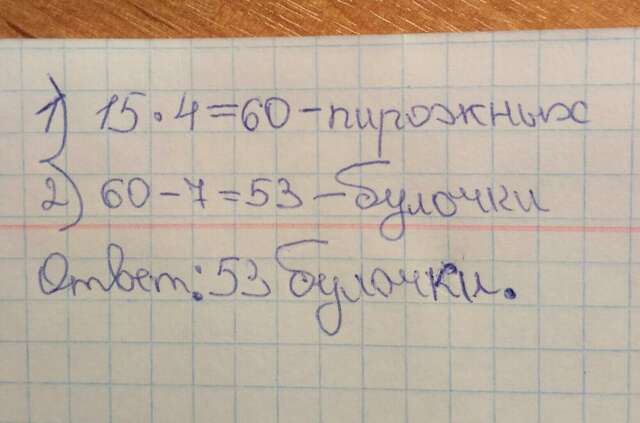 1) 15·4=60-пирожных
2) 60-7=53-булочки
Ответ: 53 булочки.